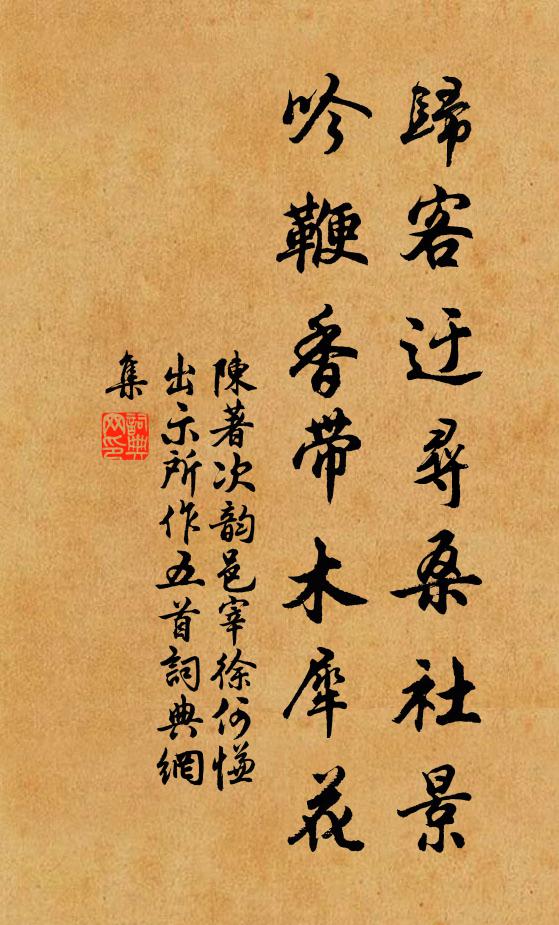 歸客迂尋桑社景
吟鞭香帶木犀花
陳著次韵邑宰徐何慊
出示所作五首詞典網
集
詞典
网印